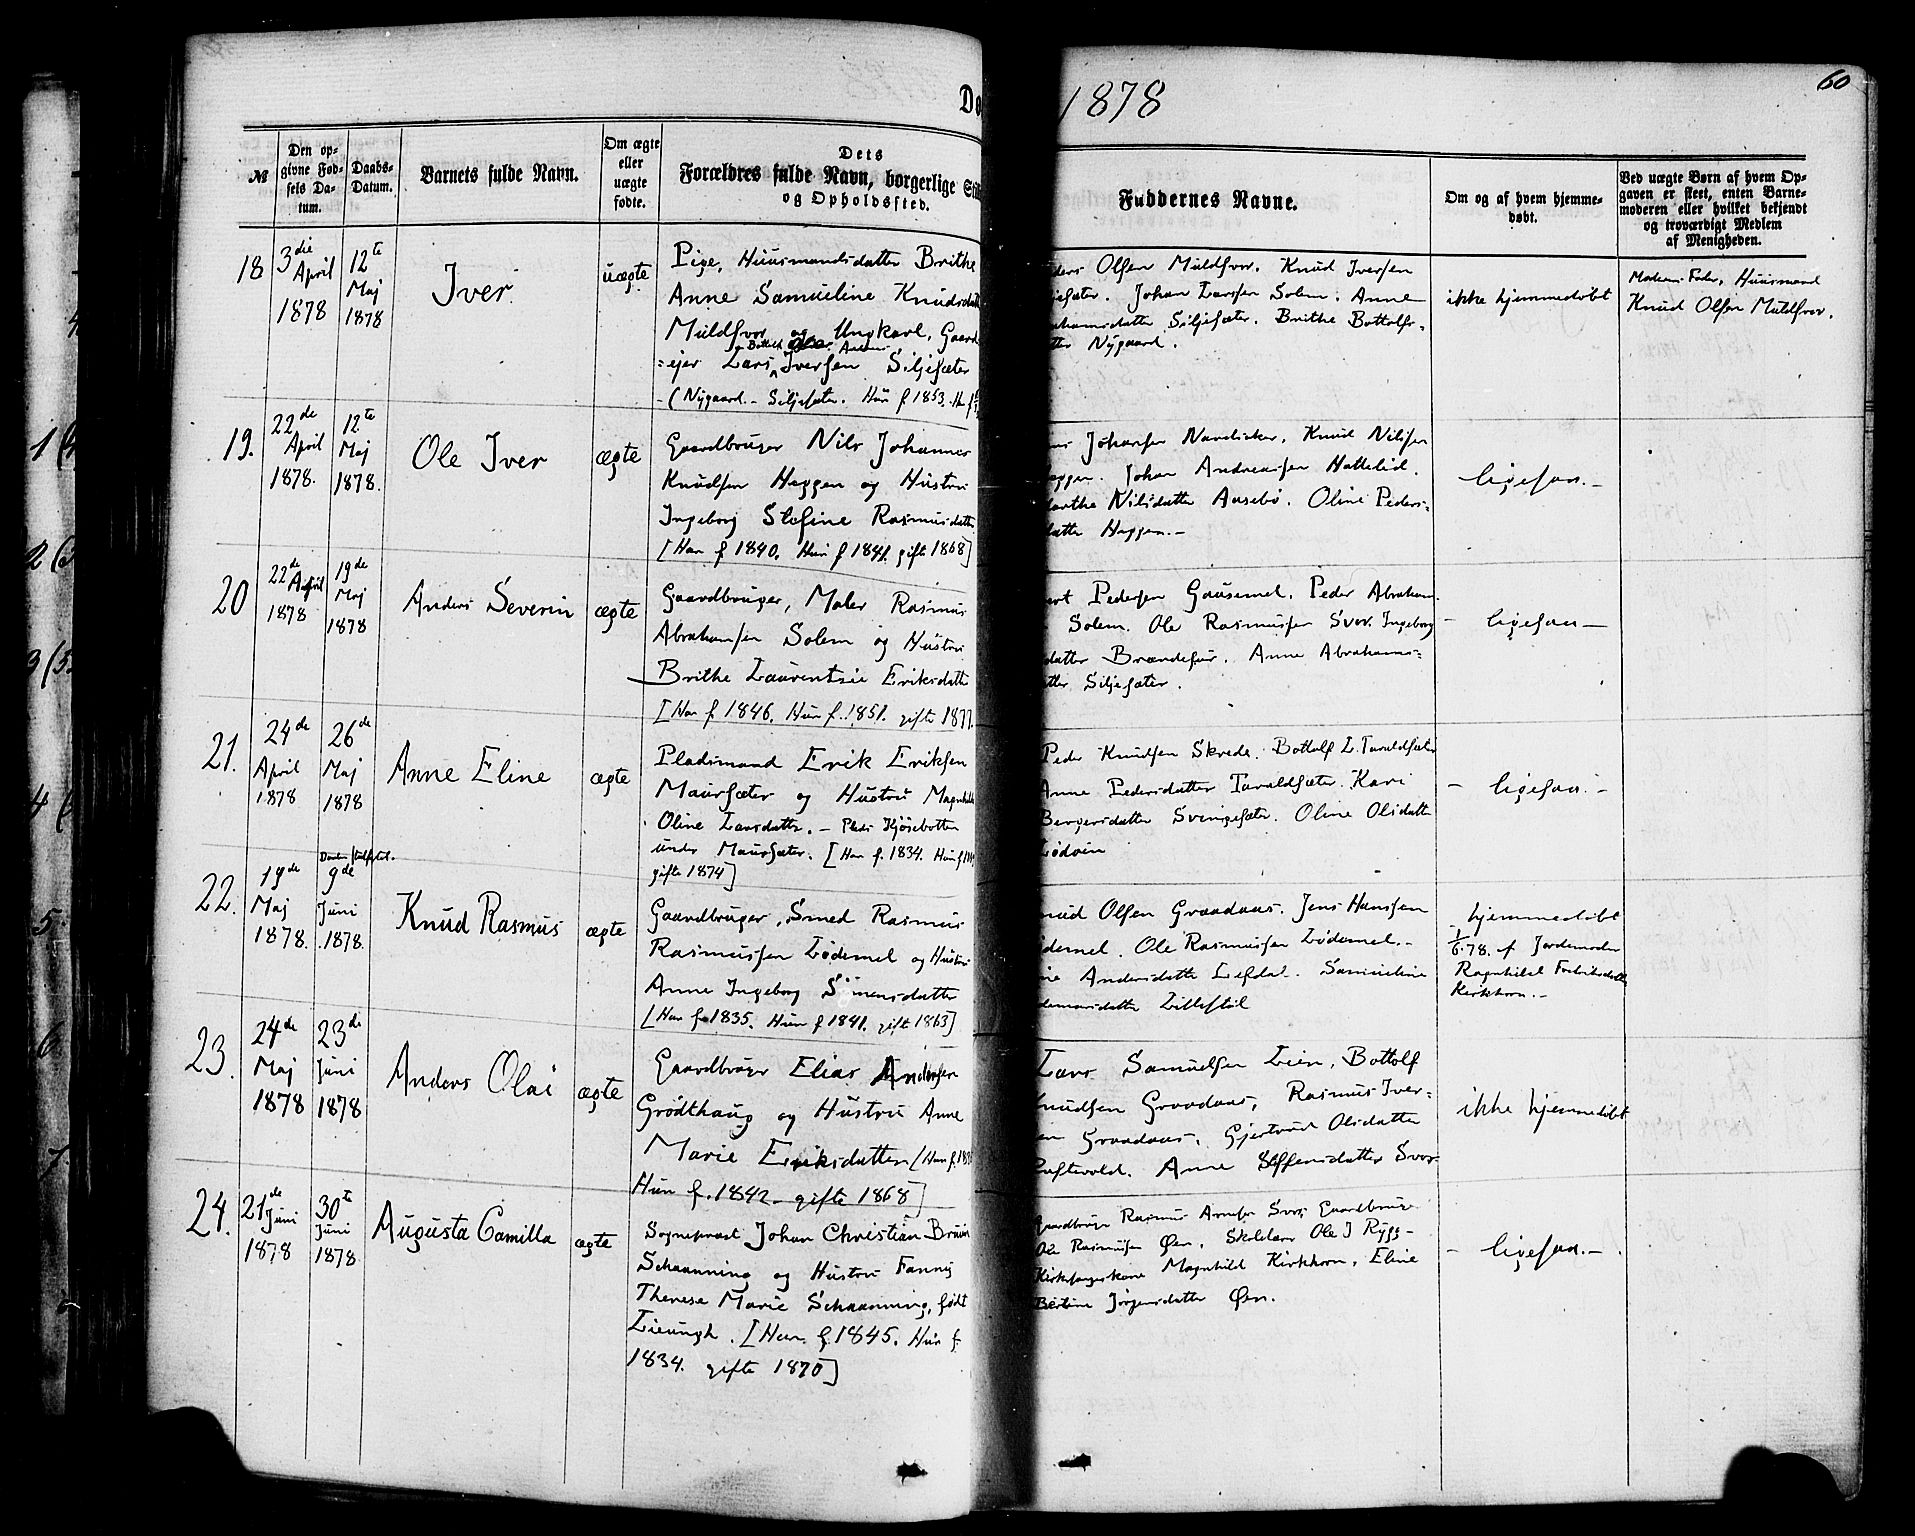 60
Dø
1878
№
Den op-
givne Fød-
sels Da-
tum.
Daabs-
Datum.
Barnets fulde Navn.
Om ægte
eller
uægte
fødte.
Dets
Forældres fulde Navn, borgerlige Sti
og Opholdssted.
Faddernes Navne.
Om og af hvem hjemme-
døbt.
Ved uægte Børn af hvem Op-
gaven er skeet, enten Barne-
moderen eller hvilket bekjendt
og troværdigt Medlem
af Menigheden.
18
3die
April
1878
12te
Maj
1878
Iver
uægte
Pige, Huusmandsdatter Brithe
Anne Samueline Knudsdatt
Muldsvor og Ungkarl, Gaard
=ejer Lars Iversen Siljesæter
(Nygaard - Siljesæter. Hun f. 1853.
ders Olsen Muldsvor. Knud Iversen
jesæter. Johan Larssen Solem. Anne
ahamsdatter Siljesæter. Brithe Bottolfs-
tter Nygaard.
ikke hjemmedøbt
Moderens Fader, Huusmand
Knud Olsen Muldsvor.
19.
22de
April
1878.
12te
Maj
1878.
Ole Iver
ægte
Gaardbruger Nils Johannes
Knudsen Heggen og Hustru
Ingeborg Stefine Rasmusdatter
[Han f 1840. Hun f 1841. gifte 1868]
Johansen Knud Nilssen
Johan Andreassen Hatlelid.
arthe Nilsdatter Aasebø. Oline Peders=
datter Heggen.-
ligesaa.-
20
22de April
1878
19de
Maj
1878
Anders Severin
ægte
Gaardbruger, Maler Rasmus
Abrahamsen Solem og Hustru
Brithe Laurentsie Eriksdatter
[Han f. 1846. Hun f. 1851. gifte 1877.
Pedersen Gausemel. Peder Abraham-
Solem. Ole Rasmussen Svor. Ingeborg
datter Brændefur. Anne Abrahams=
tter Siljesæter.
- ligesaa -
21.
24de
April
1878
26de
Maj
1878
Anne Eline
ægte
Pladsmand Erik Eriksen
Maursæter og Hustru Magnhild
Oline Larsdatter. - Plads Kjøsebotten
under Maursæter. [Han f. 1834. Hun f.
gifte 1874]
Peder Knudsen Skrede. Bottolf L. Taraldsæter
Anne Pedersdatter Taraldsæter. Kari
Bergersdatter Svingesæter. Oline Olsdatter
Lødøen
- ligesaa. -
22.
19de
Maj
1878.
9de
Juni
1878.
Knud Rasmus
ægte
Gaardbruger, Smed Rasmus
Rasmussen Lødemel og Hustru
Anne Ingeborg Simensdatter
[Han f. 1835. Hun f 1841. gift 1863]
nud Olsen Graadaas. Jens Hanssen
demel. Ole Rasmussen Lødemel.-
ne Andersdatter Lefdal. Samueline
demarsdatter Lillestøl
hjemmedøbt
1/6.78. af Jordemoder
Ragnhild
Kirkhorn.-
23.
24de
Maj
1878
23de
Juni
1878
Anders Olai
ægte
Gaardbruger Elias Andersen
Grodthaug og Hustru Anne
Marie Eriksdatter [Han f.
Hun f. 1842. gifte 1868]
Lars Samuelsen Lien, Bottolf
Knudsen Graadaas, Rasmus Iver-
en Graadaas. Gjertrud Olsdatter
Tuftevold. Anne Steffensdatter Svor
ikke hjemmedøbt
24.
21de
Juni
1878
30te
Juni
1878
Augusta Camilla
ægte
Sognepræst Johan Christian Bruun
Schaanning og Hustru Fanny
Therese Marie Schaanning, født
Lieungh. [Han f. 1845. Hun f.
1834. gifte 1870]
Gaardbruger Rasmus Arnesen Svor, Gaardbruger
Ole Rasmussen Øen. Skolelærer Ole J Rygg-
Kirkesangerkone Magnhild Kirkhorn. Eline
Bertine Jørgensdatter Øen.
- ligesaa. -